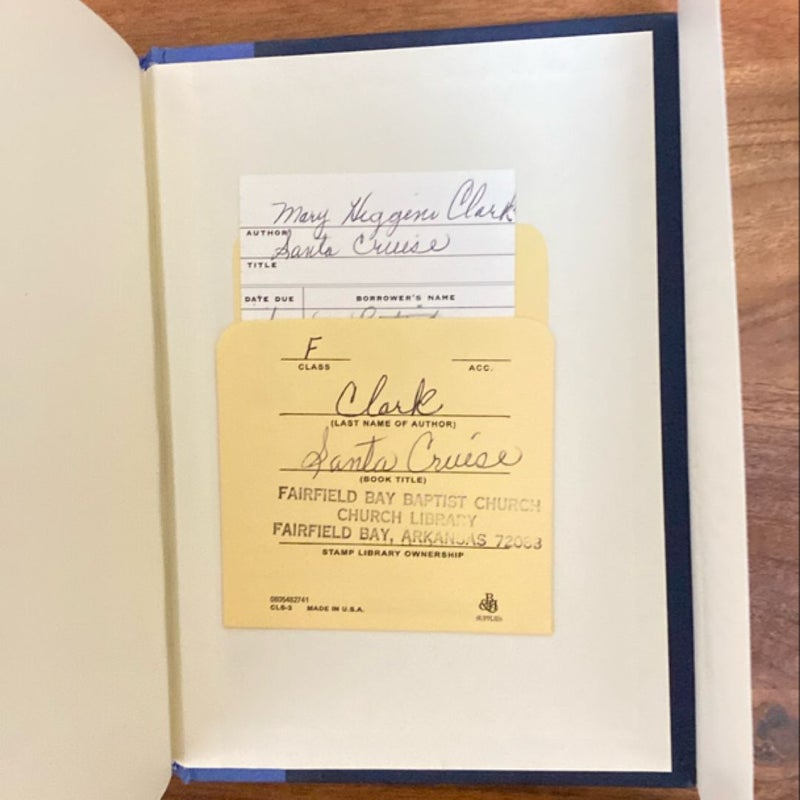 Mary Higgins Clark
AUTHOR
Santa Cruise
TITLE
DATE DUE BORROWER'S NAME
F
CLASS ACC.
Clark
(LAST NAME OF AUTHOR)
Santa Cruise
(BOOK TITLE)
FAIRFIELD BAY BAPTIST CHURCH
CHURCH LIBRARY
FAIRFIELD BAY, ARKANSAS 72088
STAMP LIBRARY OWNERSHIP
0805482741
CLS-3 MADE IN U.S.A.
B&H
SUPPLIES